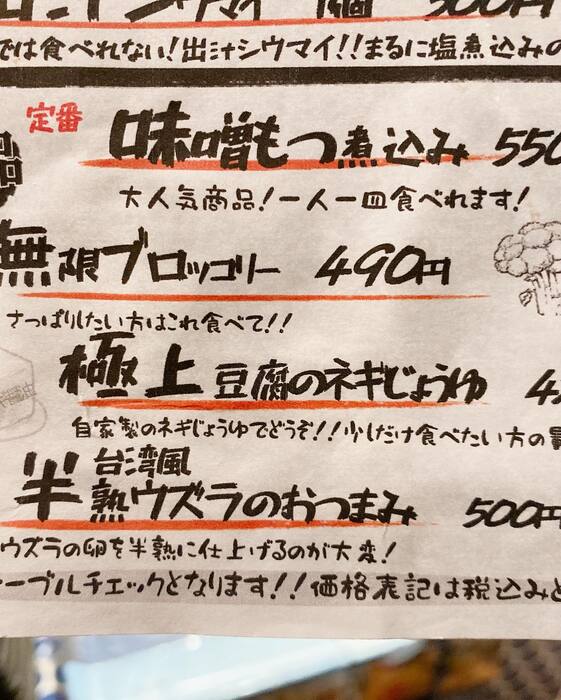 シウマイ 1個 300円
では食べれない!出汁シウマイ!!まるに塩煮込みの
定番
味噌もつ煮込み 550
大人気商品!一人一皿食べれます!
無限ブロッコリー 490円
さっぱりしたい方はこれ食べて!!
極上豆腐のネギじょうゆ 4
自家製のネギじょうゆでどうぞ!!少しだけ食べたい方の量
台湾風
半熟ウズラのおつまみ 500円
ウズラの卵を半熟に仕上げるのが大変!
ーブルチェックとなります!!価格表記は税込みと